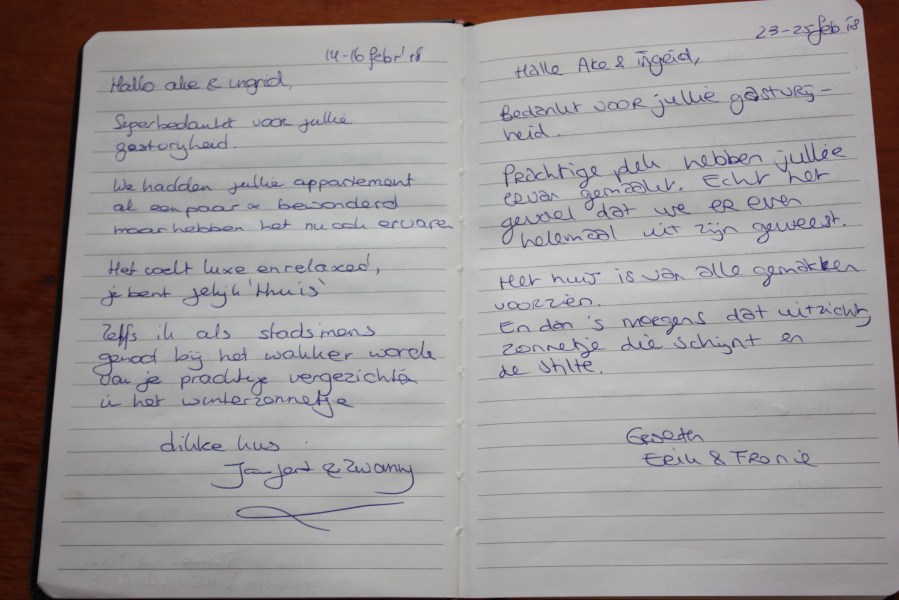 14-16 febr '18
Hallo Ake & Ingrid,
Superbedankt voor jullie
gastvrijheid.
We hadden jullie appartement
al een paar x bewonderd
maar hebben het nu ook ervaren
Het voelt luxe en relaxed,
je bent gelijk 'thuis'
Zelfs ik als stadsmens
genoot bij het wakker worden
van je prachtige vergezichten
in het winterzonnetje
dikke kus
& Zwanny
23-25 feb 18
Hallo Ake & Ingrid,
Bedankt voor jullie gastvrij-
heid.
Prachtige plek hebben jullie
ervan gemaakt. Echt het
gevoel dat we er even
helemaal uit zijn geweest.
Het huis is van alle gemakken
voorzien.
En dan 's morgens dat uitzicht,
zonnetje die schijnt en
de stilte.
Groeten
Erik &